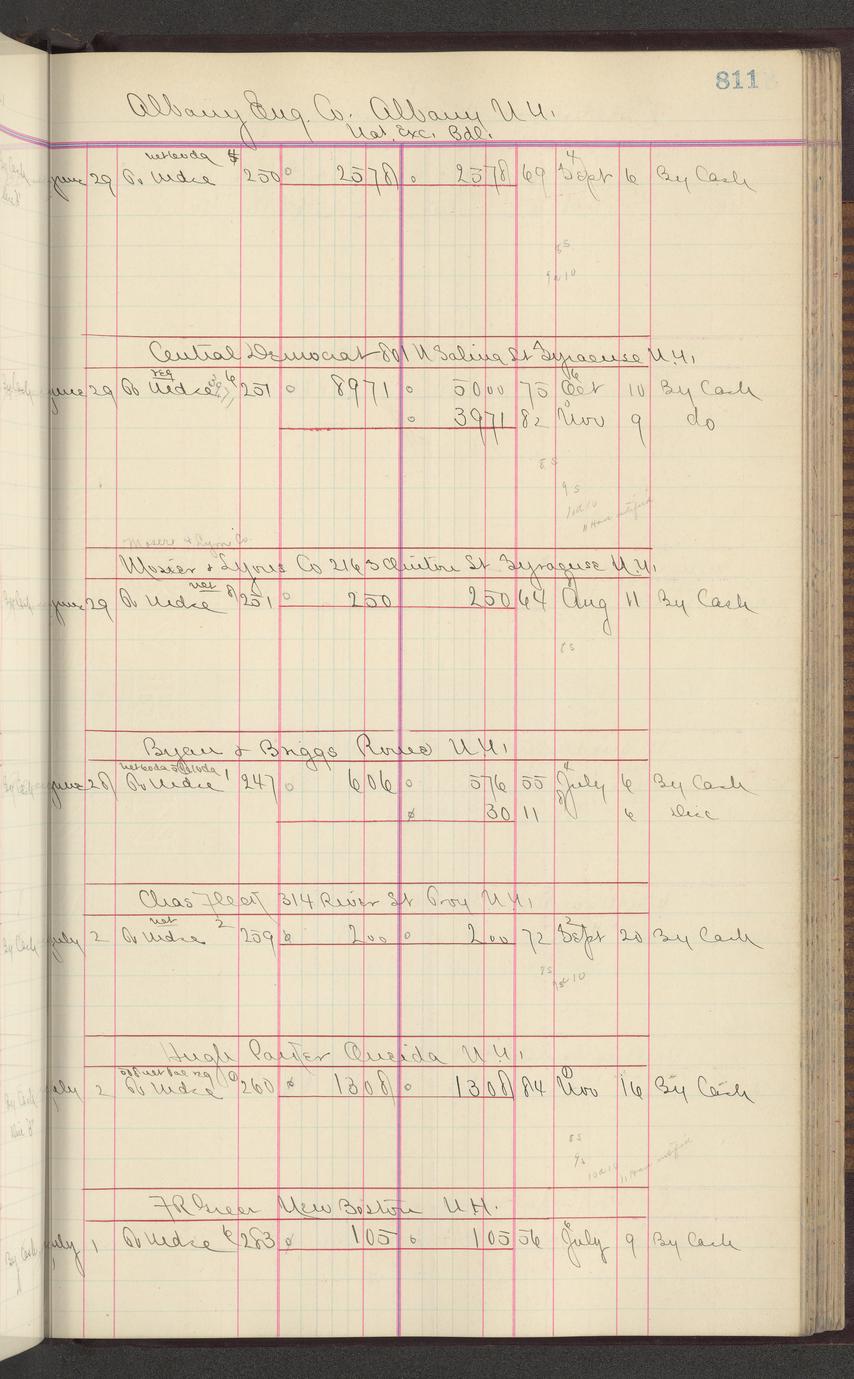 811
Albany Eng. Co. Albany N.Y.
Nat. Exc. Bdl.
June 29 To Mdse 250 2578 2578 69 Sept 6 By Cash
8s
9s 10
Central Democrat 801 N Salina St Syracuse N.Y.
reg
June 29 To Mdse 251 8971 5000 75 Oct 10 By Cash
3971 82 Nov 9 do
8s
9s
10d10
11 Have notified
Mosere & Lyon Co.
Mosier & Lyons Co 216 S Clinton St Syracuse N.Y.
net
June 29 To Mdse 251 250 250 64 Aug 11 By Cash
8s
Byan & Briggs Rome N.Y.
June 28 To Mdse 247 606 576 55 July 6 By Cash
30 11 6 Disc
Chas Fleet 314 River St Troy N.Y.
net 2
July 2 To Mdse 259 200 200 72 Sept 20 By Cash
8s
9s 10
Hugh Parker Oneida N.Y.
July 2 To Mdse 260 1308 1308 84 Nov 16 By Cash
8s
9s
10d10 11 Have notified
F R Greer New Boston N.H.
July 1 To Mdse 283 105 105 56 July 9 By Cash